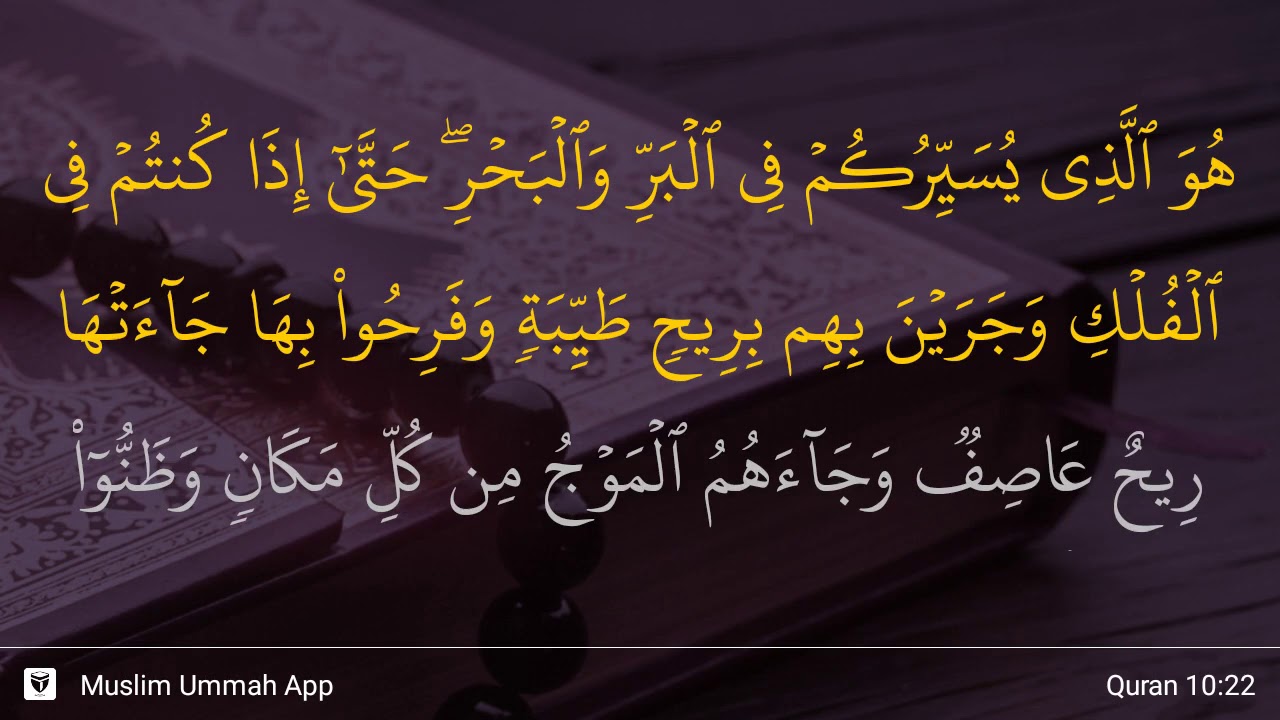 هُوَ ٱلَّذِى يُسَيِّرُكُمْ فِى ٱلْبَرِّ وَٱلْبَحْرِ ۖ حَتَّىٰٓ إِذَا كُنتُمْ فِى
ٱلْفُلْكِ وَجَرَيْنَ بِهِم بِرِيحٍ طَيِّبَةٍ وَفَرِحُوا۟ بِهَا جَآءَتْهَا
رِيحٌ عَاصِفٌ وَجَآءَهُمُ ٱلْمَوْجُ مِن كُلِّ مَكَانٍ وَظَنُّوٓا۟
Muslim Ummah App
Quran 10:22